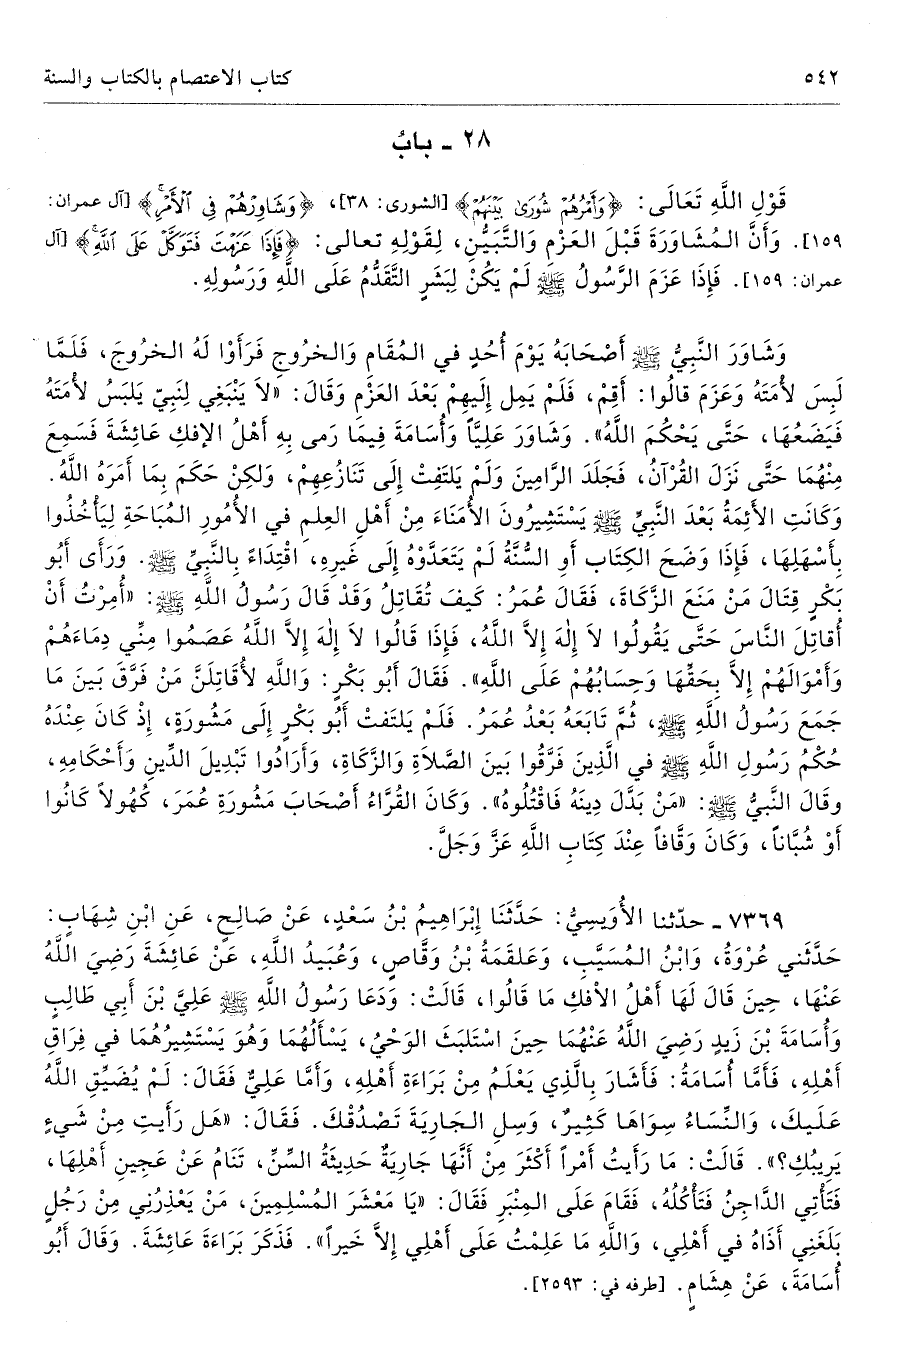 ٥٤٢ كتاب الاعتصام بالكتاب والسنة
٢٨ ـ بابُ
قَوْلِ اللَّهِ تَعَالَى: ﴿وَأَمْرُهُمْ شُورَىٰ بَيْنَهُمْ﴾ [الشورى: ٣٨]، ﴿وَشَاوِرْهُمْ فِي الْأَمْرِ﴾ [آل عمران:
١٥٩]. وَأَنَّ الْمُشَاوَرَةَ قَبْلَ العَزْمِ وَالتَّبَيُّنِ، لِقَوْلِهِ تعالى: ﴿فَإِذَا عَزَمْتَ فَتَوَكَّلْ عَلَى اللَّهِ﴾ [آل
عمران: ١٥٩]. فَإِذَا عَزَمَ الرَّسُولُ ﷺ لَمْ يَكُنْ لِبَشَرٍ التَّقَدُّمُ عَلَى اللَّهِ وَرَسُولِهِ.
وَشَاوَرَ النَّبِيُّ ﷺ أَصْحَابَهُ يَوْمَ أُحُدٍ في المُقَامِ وَالخُرُوجِ فَرَأَوْا لَهُ الخرُوجَ، فَلَمَّا
لَبِسَ لأْمَتَهُ وَعَزَمَ قالُوا: أَقِمْ، فَلَمْ يَمِل إِلَيهِمْ بَعْدَ العَزْمِ وَقَالَ: «لاَ يَنْبَغِي لِنَبِيٍّ يَلبَسُ لأْمَتَهُ
فَيَضَعُهَا، حَتَّى يَحْكُمَ اللَّهُ». وَشَاوَرَ عَلِيّاً وَأُسَامَةَ فِيمَا رَمَى بِهِ أَهْلُ الإِفكِ عَائِشَةَ فَسَمِعَ
مِنْهُمَا حَتَّى نَزَلَ القُرْآنُ، فَجَلَدَ الرَّامِينَ وَلَمْ يَلتَفِتْ إِلَى تَنَازُعِهِمْ، وَلكِنْ حَكَمَ بِمَا أَمَرَهُ اللَّهُ.
وَكَانَتِ الأَئِمَّةُ بَعْدَ النَّبِيِّ ﷺ يَسْتَشِيرُونَ الأُمَنَاءَ مِنْ أَهْلِ العِلمِ في الأُمُورِ المُبَاحَةِ لِيَأْخُذُوا
بِأَسْهَلِهَا، فَإِذَا وَضَحَ الكِتَابُ أَوِ السُّنَّةُ لَمْ يَتَعَدَّوْهُ إِلَى غَيرِهِ، اقْتِدَاءً بِالنَّبِيِّ ﷺ. وَرَأَى أَبُو
بَكْرٍ قِتَالَ مَنْ مَنَعَ الزَّكاةَ، فَقَالَ عُمَرُ: كَيفَ تُقَاتِلُ وَقَدْ قَالَ رَسُولُ اللَّهِ ﷺ: «أُمِرْتُ أَنْ
أُقاتِلَ النَّاسَ حَتَّى يَقُولُوا لاَ إِلٰهَ إِلاَّ اللَّهُ، فَإِذَا قَالُوا لاَ إِلٰهَ إِلاَّ اللَّهُ عَصَمُوا مِنِّي دِمَاءَهُمْ
وَأَمْوَالَهُمْ إِلاَّ بِحَقِّهَا وَحِسَابُهُمْ عَلَى اللَّهِ». فَقَالَ أَبُو بَكْرٍ: وَاللَّهِ لأُقَاتِلَنَّ مَنْ فَرَّقَ بَينَ مَا
جَمَعَ رَسُولُ اللَّهِ ﷺ، ثُمَّ تَابَعَهُ بَعْدُ عُمَرُ. فَلَمْ يَلتَفِتْ أَبُو بَكْرٍ إِلَى مَشُورَةٍ، إِذْ كَانَ عِنْدَهُ
حُكْمُ رَسُولِ اللَّهِ ﷺ في الَّذِينَ فَرَّقُوا بَينَ الصَّلاَةِ وَالزَّكَاةِ، وَأَرَادُوا تَبْدِيلَ الدِّينِ وَأَحْكامِهِ،
وقَالَ النَّبِيُّ ﷺ: «مَنْ بَدَّلَ دِينَهُ فَاقْتُلُوهُ». وَكَانَ القُرَّاءُ أَصْحَابَ مَشُورَةِ عُمَرَ، كُهُولاً كَانُوا
أَوْ شُبَّاناً، وَكَانَ وَقَّافاً عِنْدَ كِتَابِ اللَّهِ عَزَّ وَجَلَّ.
٧٣٦٩ ـ حدّثنا الأُوَيسِيُّ: حَدَّثَنَا إِبْرَاهِيمُ بْنُ سَعْدٍ، عَنْ صَالِحٍ، عَنِ ابْنِ شِهَابٍ:
حَدَّثَني عُرْوَةُ، وَابْنُ المُسَيَّبِ، وَعَلقَمَةُ بْنُ وَقَّاصٍ، وَعُبَيدُ اللَّهِ، عَنْ عَائِشَةَ رَضِيَ اللَّهُ
عَنْهَا، حِينَ قَالَ لَهَا أَهْلُ الإفكِ مَا قَالُوا، قَالَتْ: وَدَعَا رَسُولُ اللَّهِ ﷺ عَلِيَّ بْنَ أَبِي طَالِبٍ
وَأُسَامَةَ بْنَ زَيدٍ رَضِيَ اللَّهُ عَنْهُمَا حِينَ اسْتَلبَثَ الوَحْيُ، يَسْأَلُهُمَا وَهُوَ يَسْتَشِيرُهُمَا في فِرَاقِ
أَهْلِهِ، فَأَمَّا أُسَامَةُ: فَأَشَارَ بِالَّذِي يَعْلَمُ مِنْ بَرَاءَةِ أَهْلِهِ، وَأَمَّا عَلِيٌّ فَقَالَ: لَمْ يُضَيِّقِ اللَّهُ
عَلَيكَ، وَالنِّسَاءُ سِوَاهَا كَثِيرٌ، وَسَلِ الجَارِيَةَ تَصْدُقْكَ. فَقَالَ: «هَل رَأَيتِ مِنْ شَيءٍ
يَرِيبُكِ؟». قَالَتْ: مَا رَأَيتُ أَمْراً أَكْثَرَ مِنْ أَنَّهَا جَارِيَةٌ حَدِيثَةُ السِّنِّ، تَنَامُ عَنْ عَجِينِ أَهْلِهَا،
فَتَأْتِي الدَّاجِنُ فَتَأْكُلُهُ، فَقَامَ عَلَى المِنْبَرِ فَقَالَ: «يَا مَعْشَرَ المُسْلِمِينَ، مَنْ يَعْذِرُنِي مِنْ رَجُلٍ
بَلَغَنِي أَذَاهُ في أَهْلِي، وَاللَّهِ مَا عَلِمْتُ عَلَى أَهْلِي إِلاَّ خَيراً». فَذَكَرَ بَرَاءَةَ عَائِشَةَ. وَقَالَ أَبُو
أُسَامَةَ، عَنْ هِشَامٍ. [طرفه في: ٢٥٩٣].